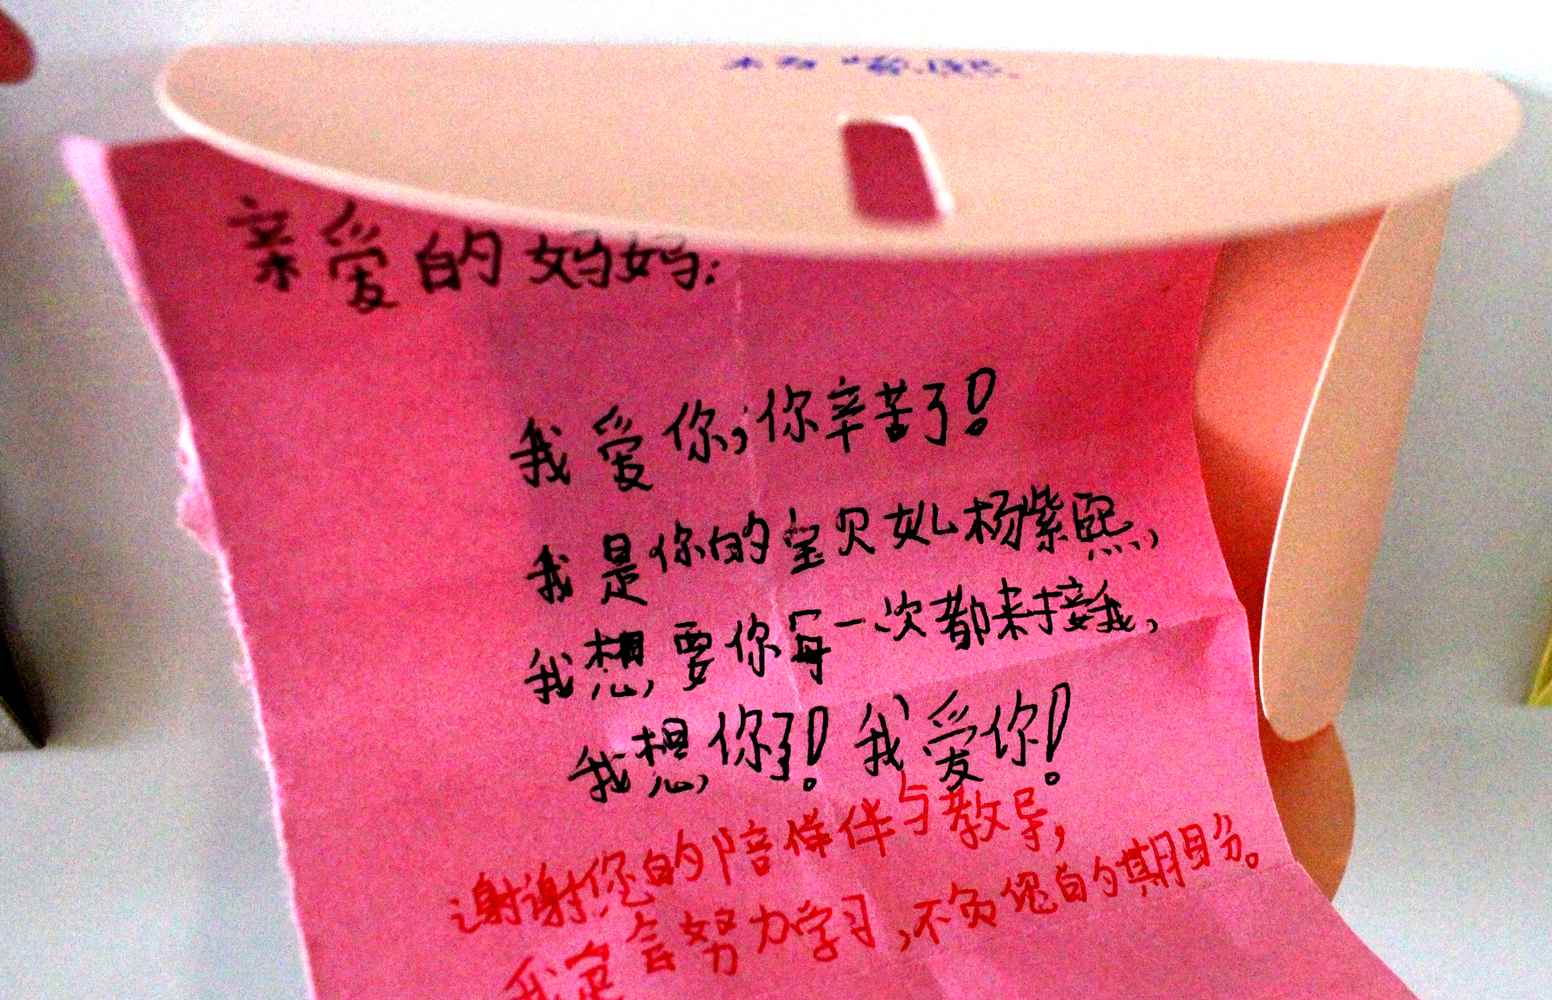 亲爱的妈妈:
我爱你,你辛苦了!
我是你的宝贝女儿杨紫熙,
我想要你每一次都来接我,
我想你了!我爱你!
谢谢您的陪伴与教导,
我定会努力学习,不负您的期盼。